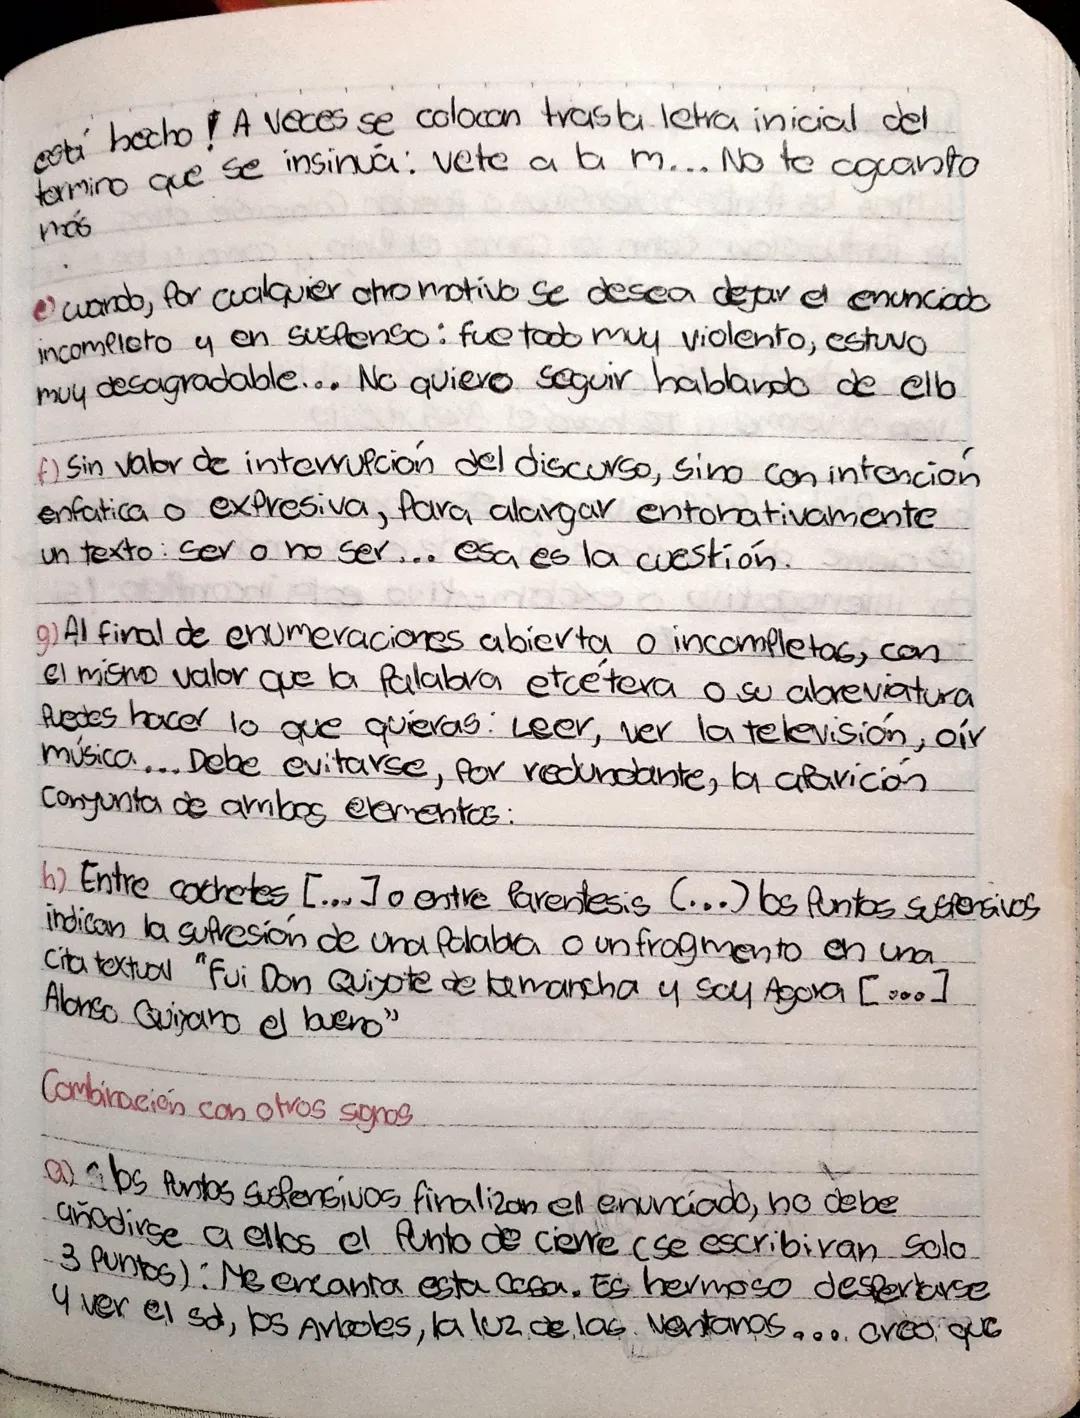 está hecho! A veces se colocan tras la letra inicial del
termino que se insinúa: vete a la m... No te aguanto
más
e) cuando, por cualquier otro motivo se desea dejar el enunciado
incompleto y en suspenso: fue todo muy violento, estuvo
muy desagradable... No quiero seguir hablando de ello
f) Sin valor de interrupción del discurso, sino con intención
enfatica o expresiva, para alargar entonativamente
un texto: ser o no ser... esa es la cuestión.
g) Al final de enumeraciones abierta o incompletas, con
el mismo valor que la palabra etcétera o su abreviatura
Puedes hacer lo que quieras: Leer, ver la televisión, oír
música... Debe evitarse, por redundante, la aparición
conjunta de ambos elementos:
h) Entre cochetes [...] o entre Parentesis (...) los Puntos suspensivos
indican la supresión de una Palabra o un fragmento en una
cita textual "Fui Don Quijote de la mancha y soy Agora [...]
Alonso Quijano el bueno"
Combinación con otros signos
a) los Puntos suspensivos finalizan el enunciado, no debe
añadirse a ellos el Punto de cierre (se escribiran solo
3 Puntos): Me encanta esta casa. Es hermoso despertarse
y ver el sol, los Arboles, la luz de las Ventanas.... creo que